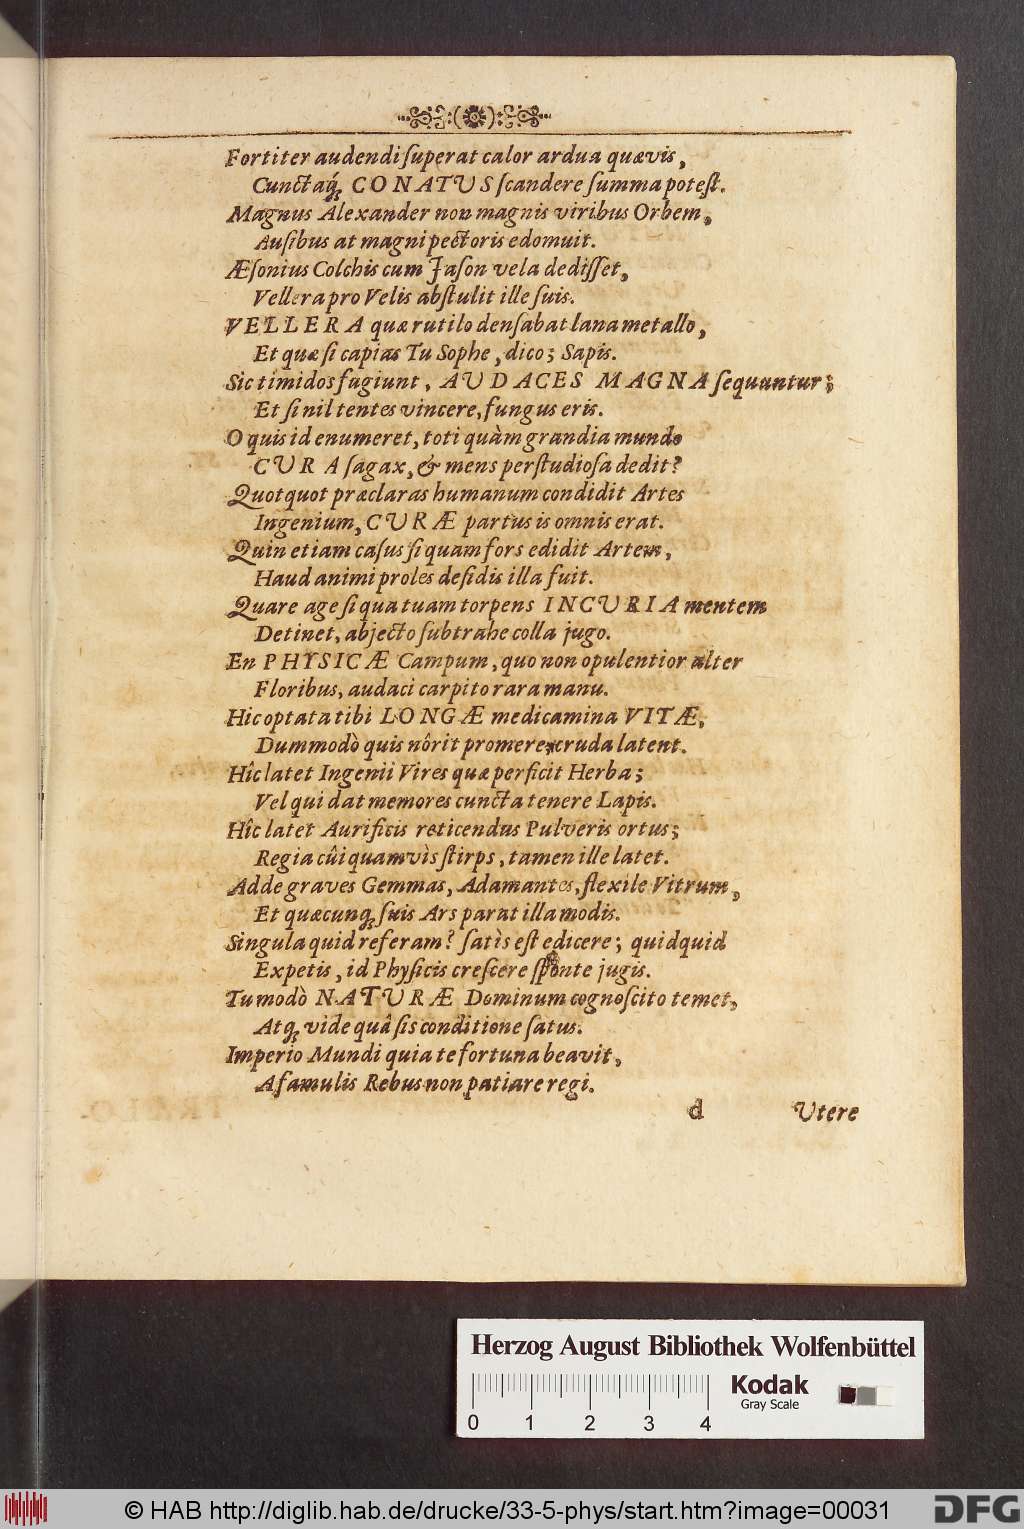 Fortiter audendi ſuperat calor ardua quævis,
Cunctaq́; CONATUS ſcandere ſumma poteſt.
Magnus Alexander non magnis viribus Orbem,
Auſibus at magni pectoris edomuit.
Æſonius Colchis cum Jaſon vela dediſſet,
Vellera pro Velis abſtulit ille ſuis.
VELLERA quæ rutilo denſabat lana metallo,
Et quæ ſi capias Tu Sophe, dico; Sapis.
Sic timidos fugiunt, AUDACES MAGNA ſequuntur;
Et ſi nil tentes vincere, fungus eris.
O quis id enumeret, toti quàm grandia mundo
CURA ſagax, & mens perſtudioſa dedit?
Quotquot præclaras humanum condidit Artes
Ingenium, CURÆ partus is omnis erat.
Quin etiam caſus ſi quam fors edidit Artem,
Haud animi proles deſidis illa fuit.
Quare age ſi qua tuam torpens INCURIA mentem
Detinet, abjecto ſubtrahe colla jugo.
En PHYSICÆ Campum, quo non opulentior alter
Floribus, audaci carpito rara manu.
Hic optata tibi LONGÆ medicamina VITÆ,
Dummodò quis nôrit promere, cruda latent.
Hîc latet Ingenii Vires quæ perficit Herba;
Vel qui dat memores cuncta tenere Lapis.
Hîc latet Aurificis reticendus Pulveris ortus;
Regia cûi quamvìs ſtirps, tamen ille latet.
Adde graves Gemmas, Adamantes, flexile Vitrum,
Et quæcunq; ſuis Ars parat illa modis.
Singula quid referam? ſatìs eſt edicere; quidquid
Expetis, id Phyſicis creſcere ſponte jugis.
Tu modò NATURÆ Dominum cognoſcito temet,
Atq; vide quâ ſis conditione ſatus.
Imperio Mundi quia te fortuna beavit,
A famulis Rebus non patiare regi.
d Utere
Herzog August Bibliothek Wolfenbüttel
Kodak
Gray Scale
0 1 2 3 4
© HAB http://diglib.hab.de/drucke/33-5-phys/start.htm?image=00031
DFG